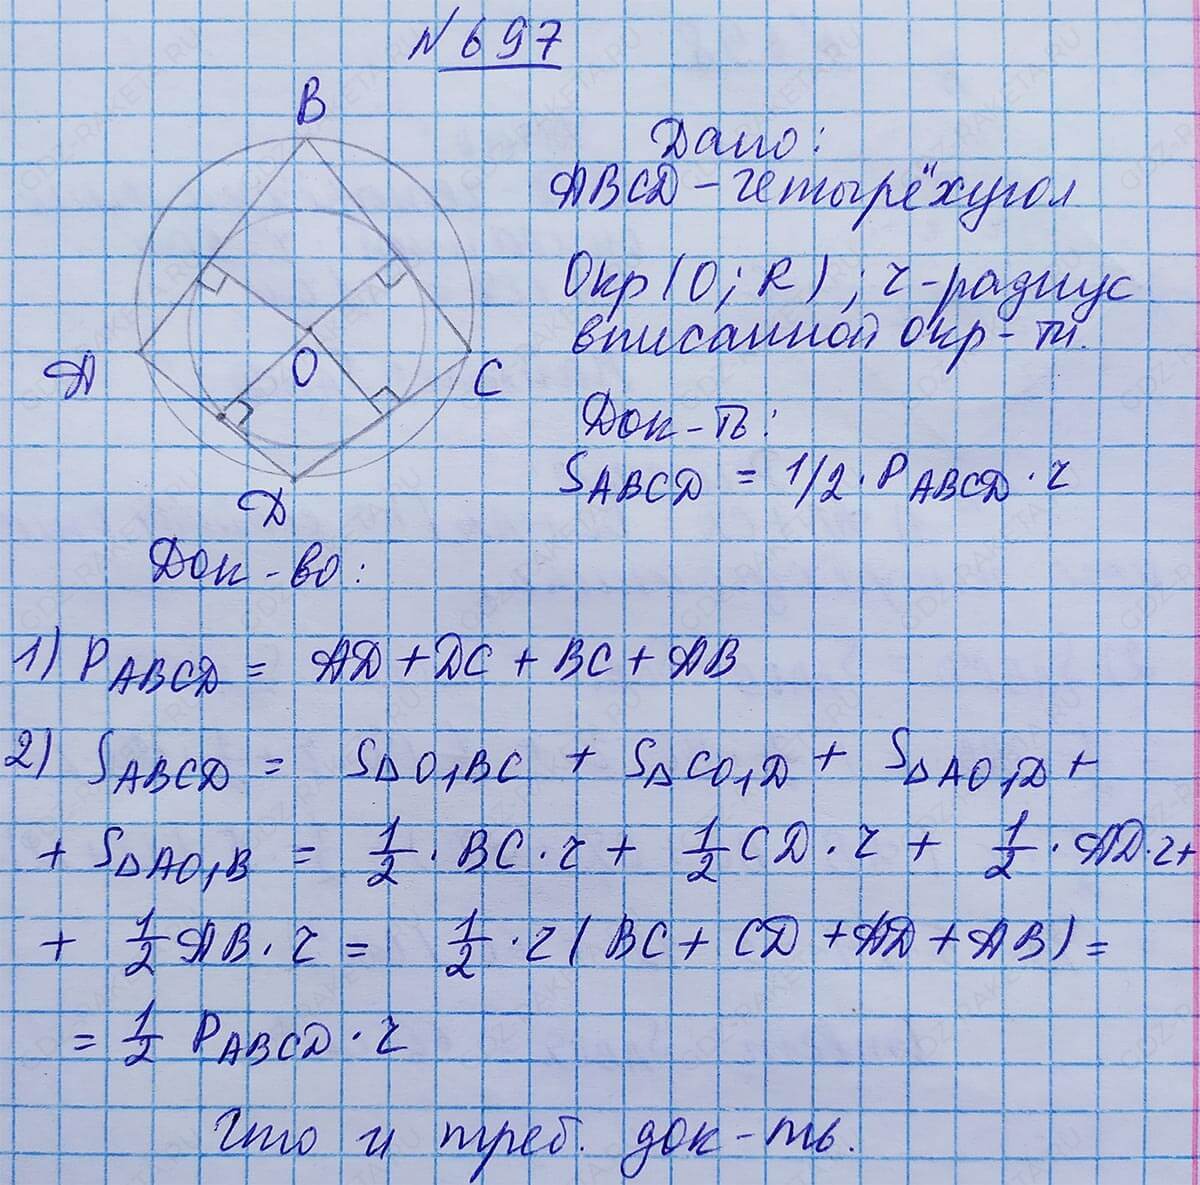 №697
B
A
O
C
D
Дано:
ABCD - четырёхугол
Окр (O; R) ; r - радиус
вписанной окр-ти.
Док-ть:
SABCD = 1/2 · PABCD · r
Док-во:
1) PABCD = AD + DC + BC + AB
2) SABCD = S△O₁BC + S△CO₁D + S△AO₁D +
+ S△AO₁B = 1/2 · BC · r + 1/2 CD · r + 1/2 · AD · r +
+ 1/2 AB · r = 1/2 · r (BC + CD + AD + AB) =
= 1/2 PABCD · r
Что и треб. док-ть.